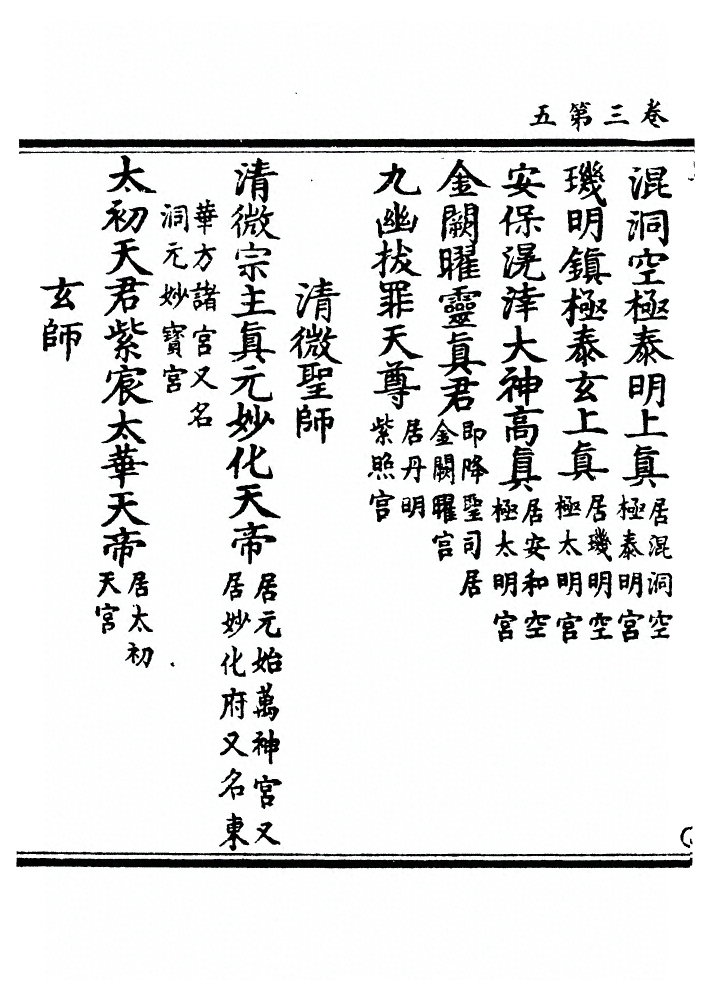 卷三第五
混洞空極泰明上真居混洞空極泰明宮
璣明鎮極泰玄上真居璣明空極太明宮
安保滉涬大神高真居安和空極太明宮
金闕曜靈真君即降聖司居金闕曜宮
九幽拔罪天尊居丹明紫照宮
清微聖師
清微宗主真元妙化天帝居元始萬神宮又居妙化府又名東
華方諸宮又名洞元妙寶宮
太初天君紫宸太華天帝居太初天宮
玄師